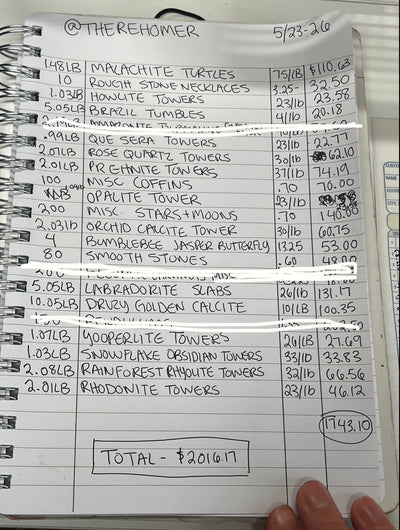 @THEREHOMER 5/23-26
1.48LB MALACHITE TURTLES 75/LB $110.63
10 ROUGH STONE NECKLACES 3.25- 32.50
1.03LB HOWLITE TOWERS 23/lb 23.58
5.05LB BRAZIL TUMBLES 4/lb 20.18
.99LB QUE SERA TOWERS 23/lb 22.77
2.07LB ROSE QUARTZ TOWERS 30/lb 62.10
2.01LB PREHNITE TOWERS 37/lb 74.19
100 MISC COFFINS .70 70.00
OPALITE TOWER 23/lb
200 MISC. STARS+MOONS .70 140.00
2.03lb ORCHID CALCITE TOWER 30/lb 60.75
4 BUMBLEBEE JASPER BUTTERFLY 13.25 53.00
80 SMOOTH STONES .60 48.00
5.05LB LABRADORITE SLABS 26/lb 131.17
10.05LB DRUZY GOLDEN CALCITE 10/LB 100.35
1.07LB YOOPERLITE TOWERS 26/LB 27.69
1.03LB SNOWFLAKE OBSIDIAN TOWERS 33/lb 33.83
2.08LB RAINFOREST RHYOLITE TOWERS 32/lb 66.56
2.01LB RHODONITE TOWERS 23/lb 46.12
1743.10
TOTAL - $2016.17